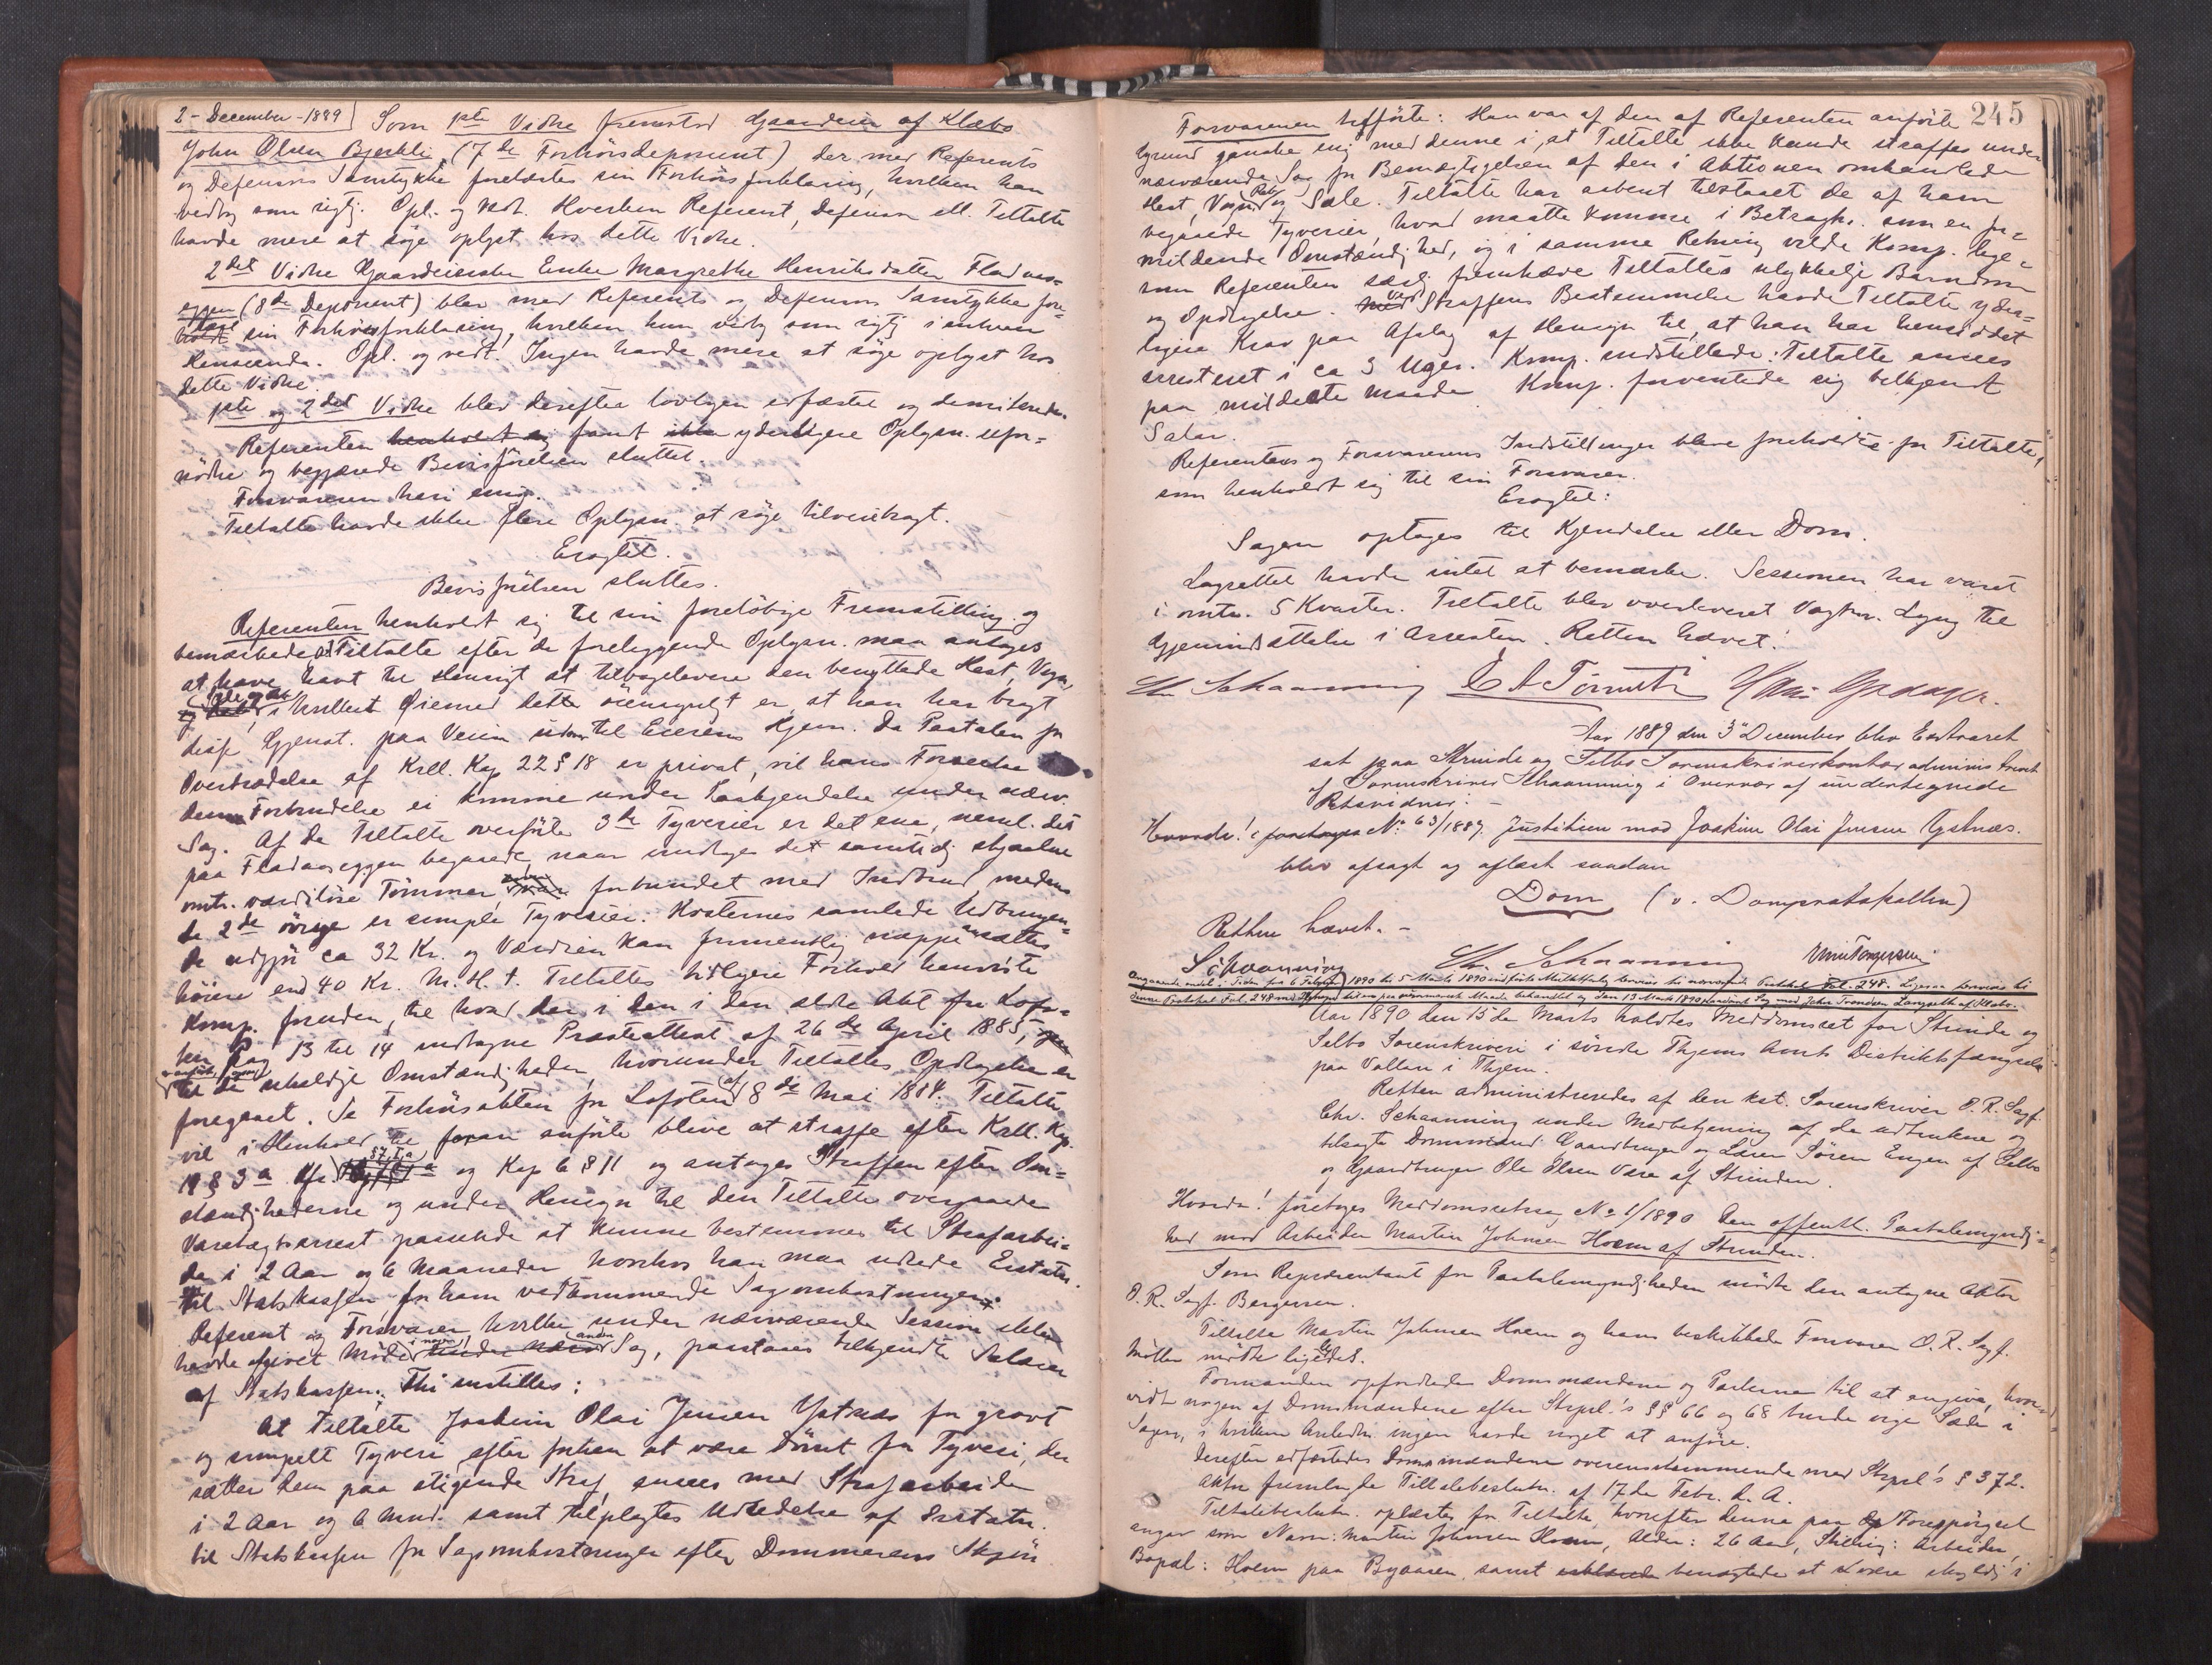 2 - December - 1889 Som 1ste Vidne fremstod Gaardeier af Klæbo
John Olsen Bjerkli (7de Forhørsdeponent) der med Referents
og Defensors Samtykke forelæstes sin Forhørsforklaring, hvilken han
vedtog som rigtig. Opl. og vedt. Hverken Referent, Defensor ell. Tiltalte
havde mere at søge oplyst hos dette Vidne.
2det Vidne Gaardeierske Enke Margrethe Henriksdatter Fladaas-
eggen (8de Deponent) blev med Referents og Defensors Samtykke fore-
læst sin Forhørsforklaring, hvilken hun vedtog som rigtig i enhver
Henseende. Opl. og vedt. Ingen havde mere at søge oplyst hos
dette Vidne.
1ste og 2det Vidne blev derefter lovligen edfæstet og demitterede.
Referenten henholdt sig fandt ikke yderligere Oplysn. ufor-
nödne og begjærede Bevisførelsen sluttet.
Forsvareren heri enig.
Tiltalte havde ikke flere Oplysn. at søge tilveiebragt.
Eragtet.
Bevisførelsen sluttes.
Referenten henholdt sig til sin foreløbige Fremstilling og
bemærkede at Tiltalte efter de foreliggende Oplysn. maa antages
at have havt til Hensigt at tilbagelevere den benyttede Hest, Vogn
og Sele i hvilket Øiemed dette øiensynligt er, at han har bragt
disse Gjenst. paa Veien til Eierens Hjem. Da Paatalen for
Overtrædelse af Krll. Kap 22 § 18 er privat, vil hans Forseelse
denne Forbindelse ei komme under Paakjendelse under nærv.
Sag. Af de Tiltalte overførte 3de Tyverier er det ene, neml. det
paa Fladaaseggen begaaede, naar undtages det samtidig stjaalne
omtr. værdiløse Tømmer, forbundet med Indbrud, medens
de 2de øvrige er simple Tyverier. Kosternes samlede Udbringen-
de udgjør ca 32 Kr. og Værdien kan formentlig neppe ansættes
høiere end 40 Kr. M. H. t. Tiltaltes tidligere Forhold henviste
Komp. foruden, til hvad der i den i den ældre Akt fra Lofo-
ten Pag 13 til 14 indtagne Præsteattest af 26de April 1885,
til de uheldige Omstændigheder, hvorunder Tiltaltes Opdragelse er
foregaaet. Se Forhørsakten fra Lofoten af 8de Mai 1884. Tiltalte
vil i Henhold til foran anførte blive at straffe efter Krll. Kap.
19 § 3 a og Kap 6 § 11 og antages Straffen efter Om-
stændighederne og under Hensyn til den Tiltalte overgaaede
Varetægtsarrest passende at kunne bestemmes til Strafarbei-
de i 2 Aar og 6 Maaneder hvorhos han maa udrede Erstatn.
til Statskassen for ham vedkommende Sagomkostninger.
Referent og Forsvarer hvilke under nærværende Session ikke
havde afgivet Møde i nogen anden Sag, paastaaes tilkjendte Salærer
af Statskassen. Thi instilles:
At Tiltalte Joakim Olai Jensen Ystnæs for grovt
og simpelt Tyveri, efter forhen at være dømt for Tyveri, der
sætter ham paa stigende Straf, ansees med Strafarbeide
i 2 Aar og 6 Mnd. samt tilpligtes Udredelse af Erstatn.
til Statskassen for Sagsomkostninger efter Dommerens Skjøn
245
Forsvareren tilførte: Han var af den af Referenten anførte
Grund ganske enig med denne i, at Tiltalte ikke kunde straffes under
nærværende Sag for Bemægtigelsen af den i Aktionen omhandlede
Hest, Vogn og Sæle. Tiltalte har aabent tilstaaet de af ham
begaaede Tyverier, hvad maatte komme i Betragtn. som en for-
mildende Omstændighed, og i samme Retning vilde Komp. lige-
som Referenten særlig fremhæve Tiltaltes ulykkelige Barndom
og Opdragelse. Ved Straffens Bestemmelse havde Tiltalte yder-
ligere Krav paa Afslag af Hensyn til, at han har henseddet
arresteret i ca 3 Uger. Komp. indstillede: Tiltalte ansees
paa mildeste Maade. Komp. forventede sig tilkjendt
Salær.
Referentens og Forsvarerens Indstillinger bleve foreholdte for Tiltalte,
som henholdt sig til sin Forsvarer.
Eragtet:
Sagen optages til Kjendelse eller Dom.
Lagrettet havde intet at bemærke. Sessionen har varet
i omtr. 5 Kvarter. Tiltalte blev overleveret Vagtm. Lyng til
Gjenindsættelse i Arresten. Retten hævet.
Chr Schaanning
Aar 1889 den 3 December blev Extraret
sat paa Strinde og Selbo Sorenskriverkontor administreret
af Sorenskriver Schaanning i Overvær af undertegnede
Retsvidner:
Hvorda! i No 63/1889 Justitien mod Joakim Olai Jensen Ystnæs.
blev afsagt og aflæst saadan
Dom (v. Domprotokollen)
Retten hævet. -
Chr. Schaanning
Aar 1890 den 15de Marts holdtes Meddomsret for Strinde og
Selbo Sorenskriveri i søndre Thjems Amts Distriktsfængsel
paa Vollan i Thjem.
Retten administreredes af den kst. Sorenskriver O. R. Sagf.
Chr. Schaanning under Medbetjening af de udtrukne og
tilsagte Domsmænd Gaardbruger og Lærer Søren Engen af Selbo
og Gaardbruger Ole Olsen Være af Strinden.
Hvorda! foretoges Meddomsretssag No 1/1890 Den offentl. Paatalemyndig-
hed mod Arbeider Martin Johnsen Hoem af Strinden.
Som Repræsentant for Paatalemyndigheden mødte den antagne Aktor
O. R. Sagf. Bergersen.
Tiltalte Martin Johnsen Hoem og hans beskikkede Forsvarer O. R. Sagf.
Møller mødte ligeledes.
Formanden opfordrede Domsmændene og Parterne til at angive, hvor-
vidt nogen af Domsmændene efter Strpsl.'s §§ 66 og 68 burde vige Sæde i
Sagen, i hvilken Anledn. ingen havde noget at anføre.
Derefter edfæstedes Domsmændene overensstemmende med Strpsl.'s § 372.
Aktor fremlagde Tiltalebeslutn. af 17de Febr. d. A.
Tiltalebeslutn. oplæstes for Tiltalte, hvorefter denne paa Forespørgsel
angav som Navn: Martin Johnsen Hoem, Alder: 26 Aar, Stilling: Arbeider,
Bopæl: Hoem paa Byaasen, samt benægtede at være skyldig i